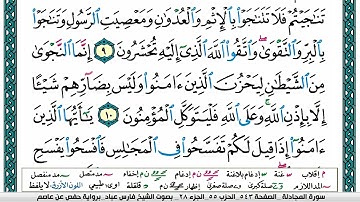 تَنَـٰجَيْتُمْ فَلَا تَتَنَـٰجَوْا۟ بِٱلْإِثْمِ وَٱلْعُدْوَٰنِ وَمَعْصِيَتِ ٱلرَّسُولِ وَتَنَـٰجَوْا۟
بِٱلْبِرِّ وَٱلتَّقْوَىٰ ۖ وَٱتَّقُوا۟ ٱللَّهَ ٱلَّذِىٓ إِلَيْهِ تُحْشَرُونَ ٩ إِنَّمَا ٱلنَّجْوَىٰ
مِنَ ٱلشَّيْطَـٰنِ لِيَحْزُنَ ٱلَّذِينَ ءَامَنُوا۟ وَلَيْسَ بِضَآرِّهِمْ شَيْـًٔا
إِلَّا بِإِذْنِ ٱللَّهِ ۚ وَعَلَى ٱللَّهِ فَلْيَتَوَكَّلِ ٱلْمُؤْمِنُونَ ١٠ يَـٰٓأَيُّهَا ٱلَّذِينَ
ءَامَنُوٓا۟ إِذَا قِيلَ لَكُمْ تَفَسَّحُوا۟ فِى ٱلْمَجَـٰلِسِ فَٱفْسَحُوا۟ يَفْسَحِ
سورة المجادلة الصفحة ٥٤٣ الحزب ٥٥ الجزء ٢٨ بصوت الشيخ فارس عباد برواية حفص عن عاصم